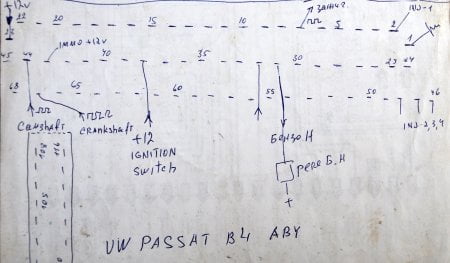 +12v
22 20 15 10 5 2 INJ-1
23 1
IMMO +12V
45 44 40 35 30 23 24
68 65 60 55 50 46
INJ-2,3,4
Camshaft CRANKSHAFT
+12
IGNITION
Switch
БЕНЗО Н
реле Б.Н
+
VW PASSAT B4 ABY